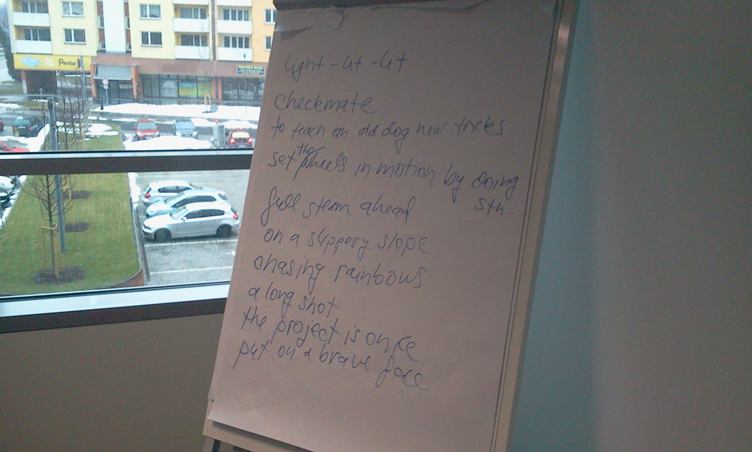 light - lit - lit
checkmate
to teach an old dog new tricks
set the wheels in motion by doing
sth..
full steam ahead
on a slippery slope
chasing rainbows
a long shot
the project is on ice
put on a brave face
Penny